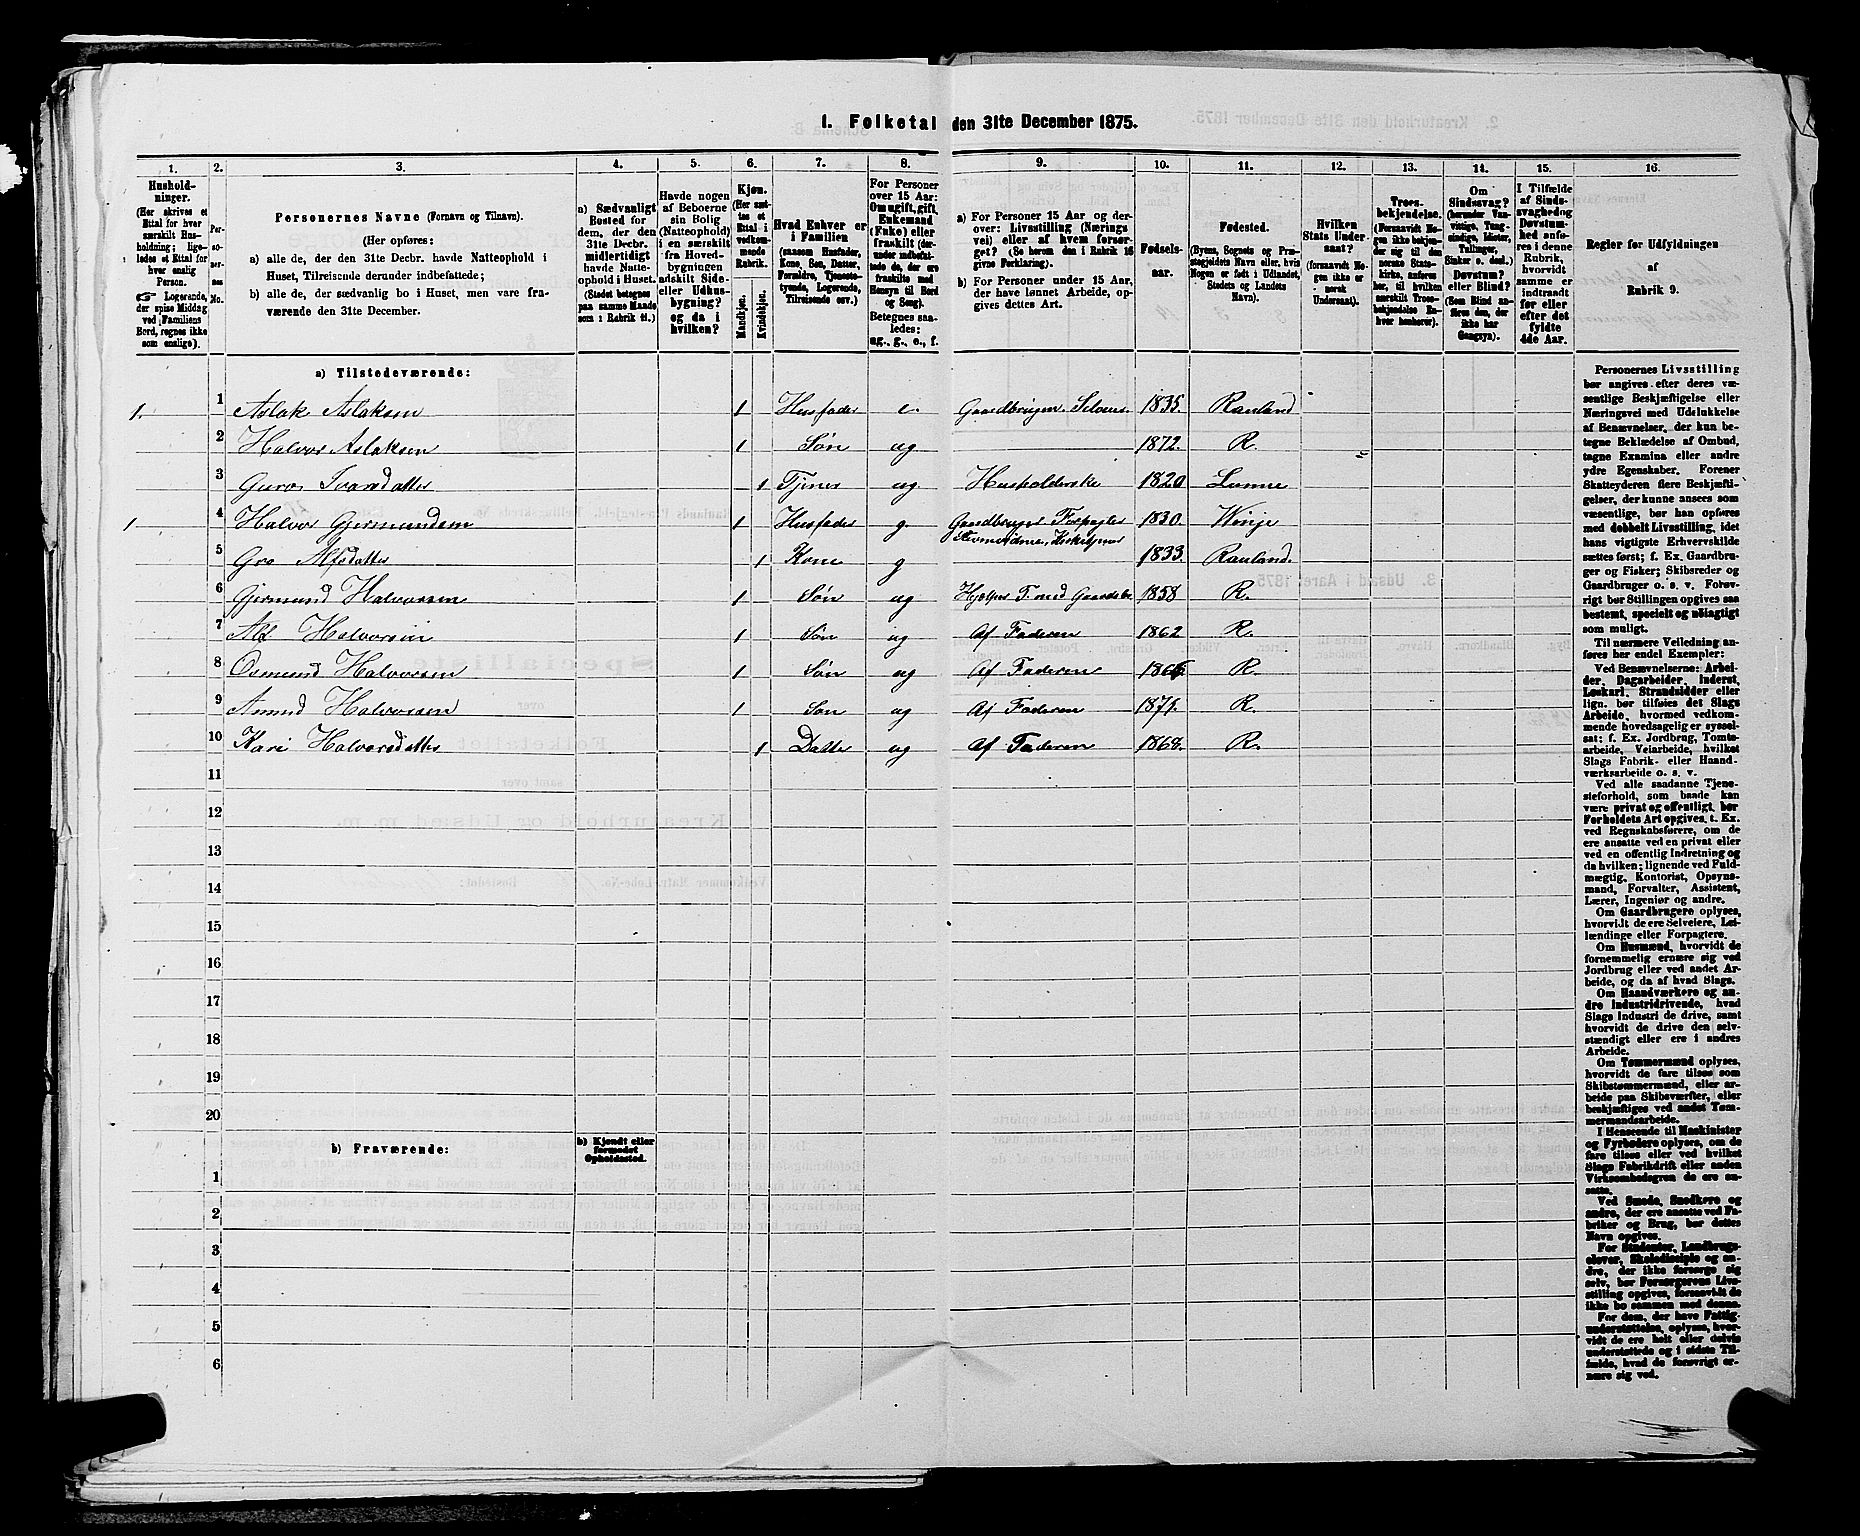 1. Folketal den 31te December 1875.
1. 2. 3. 4. 5. 6. 7. 8. 9. 10. 11. 12. 13. 14. 15. 16.
Husholdninger.
(Her skrives et
Ettal for hver
særskilt Husholdning;
ligeledes et Ettal for
hver enslig
Person.
Logerende,
der spise Middag
ved Familiens
Bord, regnes ikke
som enslige).
Personernes Navne (Fornavn og Tilnavn).
(Her opføres:
a) alle de, der den 31te Decbr. havde Natteophold i
Huset, Tilreisende derunder indbefattede;
b) alle de, der sædvanlig bo i Huset, men vare fraværende
den 31te December.
a) Sædvanligt
Bosted for
dem, der den
31te Decbr.
midlertidigt
havde Natteophold
i Huset.
Havde nogen
af Beboerne
sin Bolig
(Natteophold)
i en særskilt
fra Hovedbygningen
adskilt Side-
eller Udhusbygning?
og da i
hvilken?
Kjøn.
(Her sættes
et
Ettal i
vedkommende
Rubrik.
Mandkjøn.
Kvindekjøn.
Hvad Enhver er
i Familien
(saasom Husfader,
Kone, Søn, Datter,
Forældre, Tjenestetyende,
Logerende,
Tilreisende osv.)
For Personer
over 15 Aar:
Om ugift, gift,
Enkemand
(Enke) eller
fraskilt
Betegnes saaledes:
ug., g., e., f.
a) For Personer 15 Aar og derover:
Livsstilling (Næringsvei)
eller af hvem forsørget?
(Se herom den i Rubrik 16
givne Forklaring).
b) For Personer under 15 Aar,
der have lønnet Arbeide, opgives
dettes Art.
Fødselsaar.
Fødested.
(Byens, Sognets og Præstegjeldets
Navn eller, hvis
Nogen er født i Udlandet,
Stedets og Landets
Navn).
Hvilken
Stats Undersaat?
(forsaavidt Nogen
ikke er
norsk
Undersaat).
Troesbekjendelse.
Om
Sindssvag?
Døvstum?
eller Blind?
I Tilfælde
af Sindssvaghed
og
Døvstumhed
anføres
i denne
Rubrik,
hvorvidt
samme er
indtraadt
før eller
efter det
fyldte
4de Aar.
Regler for Udfyldningen
af
Rubrik 9.
a) Tilstedeværende:
1. 1 Aslak Aslaksen 1 Husfader e. Gaardbruger Selveier. 1835. Rauland
2 Halvor Aslaksen 1 Søn ug 1872. R.
3 Guro Ivarsdatter 1 Tjener ug Husholderske 1820 Lunne
1 4 Halvor Gjermundsen 1 Husfader g. Gaardbruger Forpagter 1830. Winje
5 Gro Alfsdatter 1 Kone g 1833. Rauland.
6 Gjermund Halvorsen 1 Søn ug Hjelper F. med Gaardsbr. 1858 R.
7 Alf Halvorsen 1 Søn ug Af Faderen 1862 R.
8 Osmund Halvorsen 1 Søn ug Af Faderen 1866 R.
9 Amund Halvorsen 1 Søn ug Af Faderen 1871. R.
10 Kari Halvorsdatter 1 Datter ug Af Faderen 1868. R.
11
12
13
14
15
16
17
18
19
20
b) Fraværende:
b) Kjendt eller
formodet
Opholdssted.
1
2
3
4
5
6
Personernes Livsstilling
bør angives efter deres væsentlige
Beskjæftigelse eller
Næringsvei med Udelukkelse
af Benævnelser, der kun betegne
Beklædelse af Ombud,
tagne Examina eller andre
ydre Egenskaber. Forener
Skatteyderen flere Beskjæftigelser,
der kunne ansees som
væsentlige, bør han opføres
med dobbelt Livsstilling, idet
hans vigtigste Erhvervskilde
sættes først; f. Ex. Gaardbruger
og Fisker; Skibsreder og
Gaardbruger o. s. v. Forøvrigt
bør Stillingen opgives saa
bestemt, specielt og nøiagtigt
som muligt.
Til nærmere Veiledning anføres
her endel Exempler:
Ved Benævnelserne: Arbeider,
Dagarbeider, Inderst,
Løskarl, Strandsidder eller
lign. bør tilføies det Slags
Arbeide, hvormed vedkommende
hovedsagelig er sysselsat;
f. Ex. Jordbrug, Tomtearbeide,
Veiarbeide, hvilket
Slags Fabrik- eller Haandværksarbeide
o. s. v.
Ved alle saadanne Tjenesteforhold,
som baade kan
være privat og offentligt, bør
Forholdets Art opgives, t. Ex.
ved Regnskabsførere, om de
ere ansatte ved en privat eller
ved en offentlig Indretning og
da hvilken; lignende ved Fuldmægtig,
Kontorist, Opsynsmand,
Forvalter, Assistent,
Lærer, Ingeniør og andre.
Om Gaardbrugere oplyses,
hvorvidt de ere Selveiere, Leilændinge
eller Forpagtere.
Om Husmænd, hvorvidt de
fornemmelig ernære sig ved
Jordbrug eller ved andet Arbeide,
og da af hvad Slags.
Om Haandværkere og andre
Industridrivende, hvad
Slags Industri de drive, samt
hvorvidt de drive den selvstændigt
eller ere i andres
Arbeide.
Om Tømmermænd oplyses,
hvorvidt de fare tilsøs som
Skibstømmermænd, eller arbeide
paa Skibsværfter, eller
beskjæftiges ved andet Tømmermandsarbeide.
I Henseende til Maskinister
og Fyrbødere oplyses, om de
fare tilsøs eller ved hvilket
Slags Fabrikdrift eller anden
Virksomhedsgren de ere ansatte.
Ved Smede, Snedkere og
andre, der ere ansatte ved Fabriker
og Brug, bør dettes
Navn opgives.
For Studenter, Landbrugselever,
Skoledisciple og andre,
der ikke forsørge sig
selv, bør Forsørgerens Livsstilling
opgives, forsaavidt de
ikke bo sammen med denne.
For dem, der have Fattigunderstøttelse,
oplyses, hvorvidt
de ere helt eller delvis
understøttede og i sidste Tilfælde,
hvad de forøvrigt ernære
sig ved.